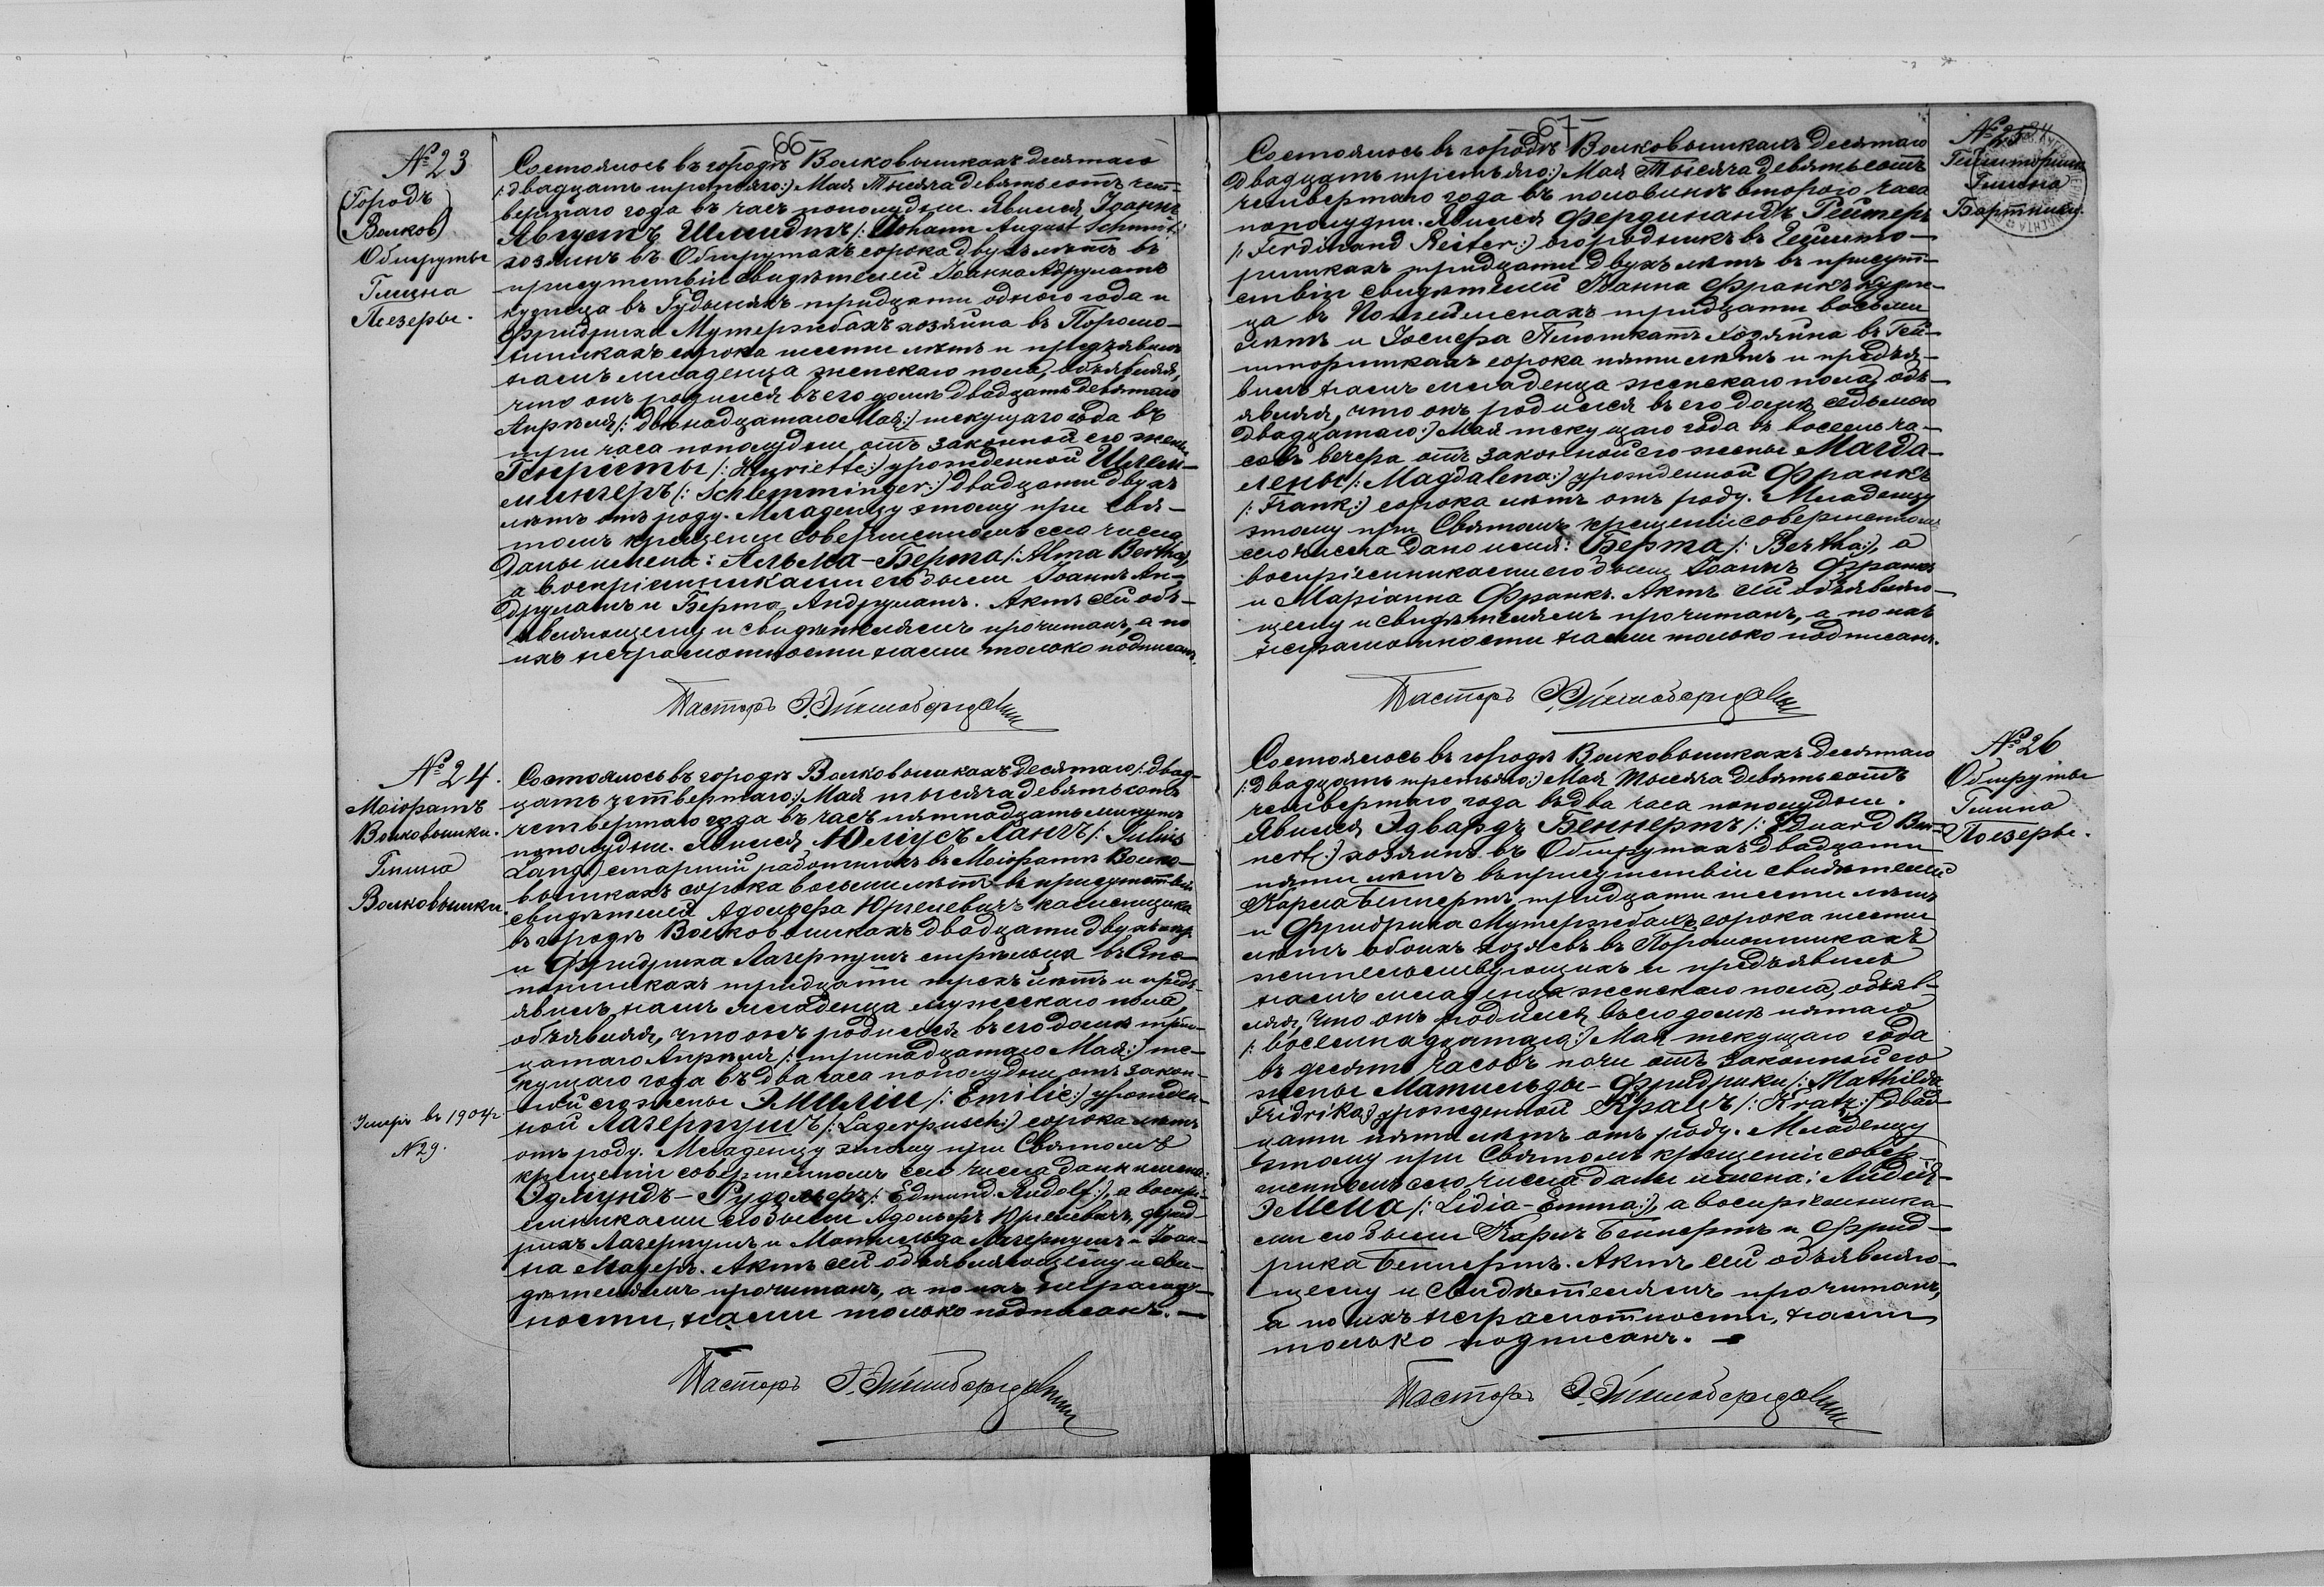 66
№ 23
(Городъ
Волков)
Обшруты
Гмина
Поезеры.
Состоялось въ городѣ Волковышкахъ десятаго
/: двадцать третьяго:/ Мая Тысяча девятьсотъ чет-
вертаго года въ часъ пополудни. Явился Іоаннъ
Августъ Шмидтъ /: Johann August Schmidt:/
хозяинъ въ Обшрутахъ сорока двухъ лѣтъ въ
присутствіи свидѣтелей Іоанна Андрулатъ
кузнеца въ Гудыняхъ тридцати одного года и
Фридриха хозяина въ
сорока шести лѣтъ и предъявилъ
намъ младенца женскаго пола, объявляя,
что онъ родился въ его домѣ двадцать девятаго
Апрѣля /: двѣнадцатаго Мая:/ текущаго года въ
три часа пополудни отъ законной его жены
Генріеты /: Henriette:/ урожденной Шлем-
мингеръ /: Schlemminger:/ двадцати двухъ
лѣтъ отъ роду. Младенцу этому при Свя-
томъ крещеніи совершенномъ сего числа
даны имена: Альма-Берта /: Alma Bertha:/,
а воспріемниками его были Іоаннъ Ан-
друлатъ и Берта Андрулатъ. Актъ сей объ-
являющему и свидѣтелямъ прочитанъ, а по
ихъ неграмотности нами только подписанъ.
Пасторъ
№ 24.
Маіоратъ
Волковышки.
Гмина
Волковышки.
Умеръ въ 1904 г.
№ 29.
Состоялось въ городѣ Волковышкахъ десятаго /: двад-
цать четвертаго:/ Мая тысяча девятьсотъ
четвертаго года въ часъ пятнадцать минутъ
пополудни. Явился Юліусъ Лангъ /: Julius
Lang:/ старшій работникъ въ Маіоратѣ Волко-
вышкахъ сорока восьми лѣтъ въ присутствіи
свидѣтелей Адольфа Юргелевичъ каменщика
въ городѣ Волковышкахъ двадцати двухъ
и Фридриха Лагерпушъ стрѣльца въ
тридцати трехъ лѣтъ и предъ-
явилъ намъ младенца мужескаго пола
объявляя, что онъ родился въ его домѣ трид-
цатаго Апрѣля /: тринадцатаго Мая:/ те-
кущаго года въ два часа пополудни отъ закон-
ной его жены Эмиліи /: Emilie:/ урожден-
ной Лагерпушъ /: Lagerpusch:/ сорока лѣтъ
отъ роду. Младенцу этому при Святомъ
крещеніи совершенномъ сего числа даны имена:
Эдмундъ-Рудольфъ /: Edmund Rudolf:/, а воспрі-
емниками его были Адольфъ Юргелевичъ, Фрид-
рихъ Лагерпушъ и Матильда Лагерпушъ и Іоан-
на Мауеръ. Актъ сей объявляющему и сви-
дѣтелямъ прочитанъ, а по ихъ неграмот-
ности, нами только подписанъ. —
Пасторъ
67
№ 25
Гмина
Бартники.
Состоялось въ городѣ Волковышкахъ Десятаго
Двадцать третьяго:/ Мая Тысяча девятьсотъ
четвертаго года въ половинѣ второго часа
пополудни. Явился Фердинандъ Рейтеръ
/: Ferdinand Reiter:/ огородникъ въ
тридцати двухъ лѣтъ въ присут-
ствіи свидѣтелей Іоанна Франкъ
въ тридцати восьми
лѣтъ и Іосифа хозяина въ
сорока пяти лѣтъ и предъя-
вилъ намъ младенца женскаго пола, объ-
являя, что онъ родился въ его домѣ седьмого
двадцатаго:/ Мая текущаго года въ восемь ча-
совъ вечера отъ законной его жены Магда-
лены /: Magdalena:/ урожденной Франкъ
/: Frank:/ сорока лѣтъ отъ роду. Младенцу
этому при Святомъ крещеніи совершенномъ
сего числа дано имя: Берта /: Bertha:/, а
воспріемниками его были Іоаннъ Франкъ
и Маріанна Франкъ. Актъ сей объявляю-
щему и свидѣтелямъ прочитанъ, а по ихъ
неграмотности нами только подписанъ.
Пасторъ
№ 26
Обшруты
Гмина
Поезеры.
Состоялось въ городѣ Волковышкахъ Десятаго
/: Двадцать третьяго:/ Мая Тысяча девятьсотъ
четвертаго года въ два часа пополудни.
Явился Эдвардъ Беннертъ /: Eduard Ben-
nert:/ хозяинъ въ Обшрутахъ двадцати
пяти лѣтъ въ присутствіи свидѣтелей
Карла Беннертъ тридцати шести лѣтъ
и Фридриха сорока шести
лѣтъ обоихъ хозяевъ въ
жительствующихъ и предъявилъ
намъ младенца женскаго пола, объяв-
ляя, что онъ родился въ его домѣ пятаго
/: восемнадцатаго:/ Мая текущаго года
въ десять часовъ ночи отъ законной его
жены Матильды-Фридрики /: Mathilda
Fridrika:/ урожденной Крацъ /: Kratz:/ двад-
цати пяти лѣтъ отъ роду. Младенцу
этому при Святомъ крещеніи совер-
шенномъ сего числа даны имена: Лидія-
Эмма /: Lidia-Emma:/, а воспріемника-
ми его были Карлъ Беннертъ и Фрид-
рика Беннертъ. Актъ сей объявляю-
щему и свидѣтелямъ прочитанъ,
а по ихъ неграмотности, нами
только подписанъ. —
Пасторъ